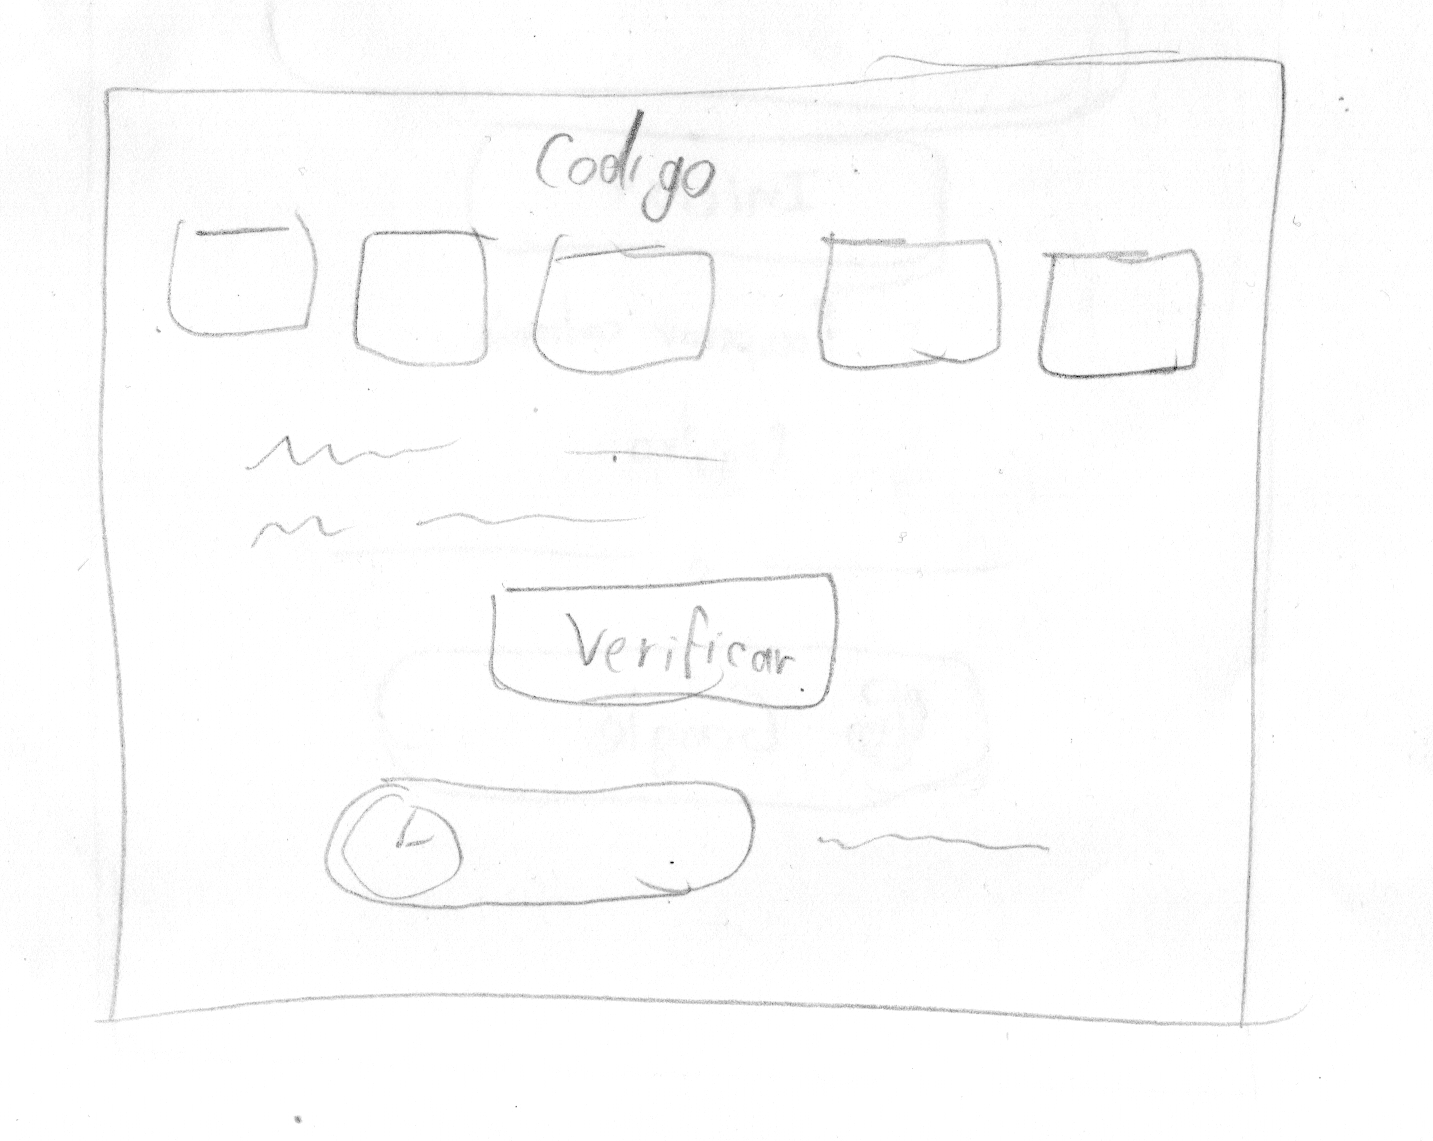 Codigo
Verificar